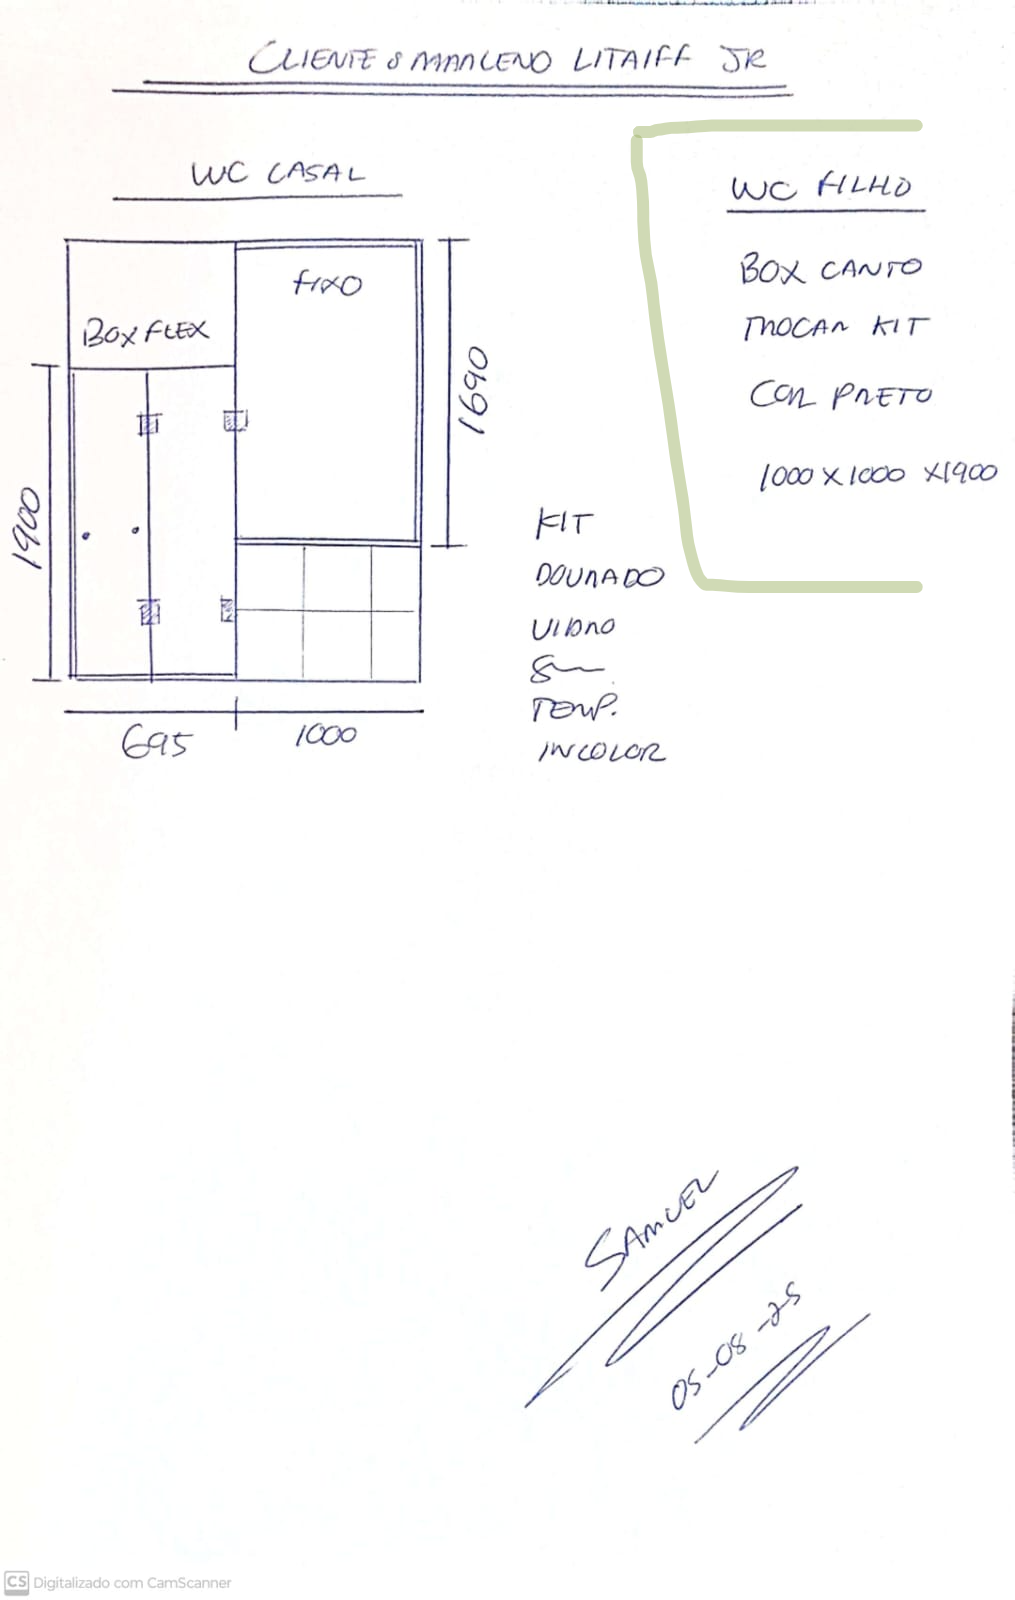 CLIENTE: MARCENO LITAIFF JR
WC CASAL
FIXO
BOX FLEX
1900
1690
695
1000
KIT
DOURADO
VIDRO
8m
TEMP.
INCOLOR
WC FILHO
BOX CANTO
TROCAR KIT
COR PRETO
1000 X 1000 X 1900
SAMUEL
05-08-25
CS Digitalizado com CamScanner